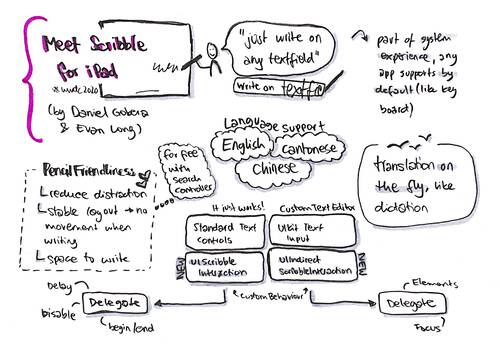 Meet Scribble
for iPad
* WWDC 2020
(by Daniel Gobera
& Evan Long)
"just write on
any textfield"
Write on textfie
part of system
experience, any
app supports by
default (like key
board)
Language support
English
Cantonese
Chinese
for free
with
search
controller
translation on
the fly, like
dictation
Pencil Friendliness
reduce distraction
stable layout → no
movement when
writing
space to write
It just works!
Custom Text Editor
Standard Text
controls
UIKit Text
Input
NEW
UIScribble
Interaction
UIIndirect
ScribbleInteraction
NEW
"Custom Behaviour"
Delay
Disable
Delegate
begin/end
Elements
Delegate
Focus